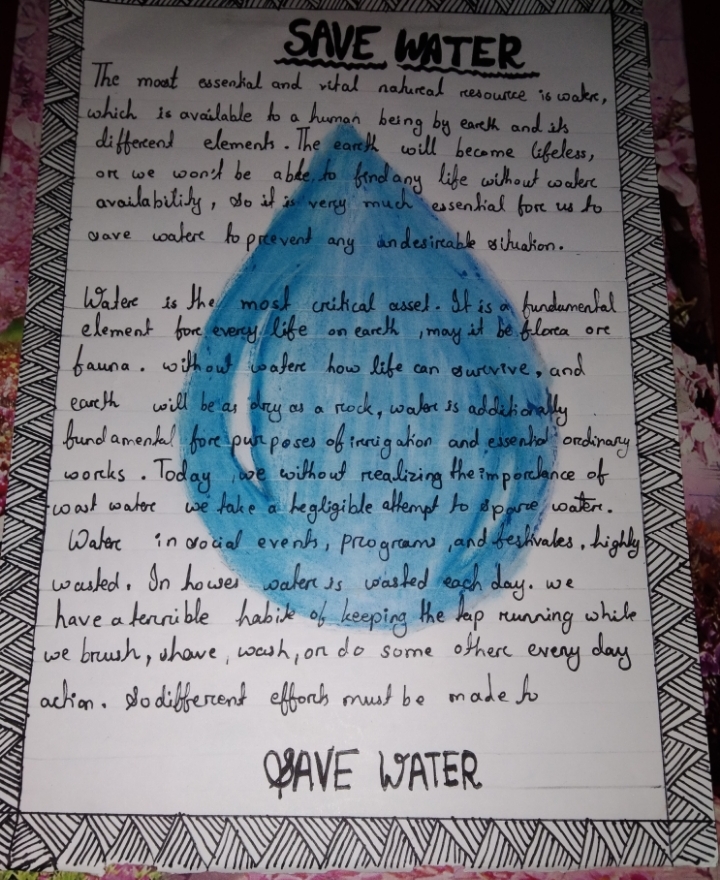 SAVE WATER
The most essential and vital natural resource is water,
which is available to a human being by earth and its
different elements. The earth will become lifeless,
or we won't be able to find any life without water
availability, so it is very much essential for us to
save water to prevent any undesirable situation.
Water is the most critical asset. It is a fundamental
element for every life on earth, may it be florea or
fauna. without water how life can survive, and
earth will be as dry as a rock, water is additionally
fundamental for purposes of irrigation and essential ordinary
works. Today we without realizing the importance of
wast water we take a negligible attempt to spare water.
Water in social events, programs, and festivales, highly
wasted. In howes water is wasted each day. we
have a terrible habit of keeping the tap running while
we brush, shave, wash, or do some other every day
action. So different efforts must be made to
SAVE WATER